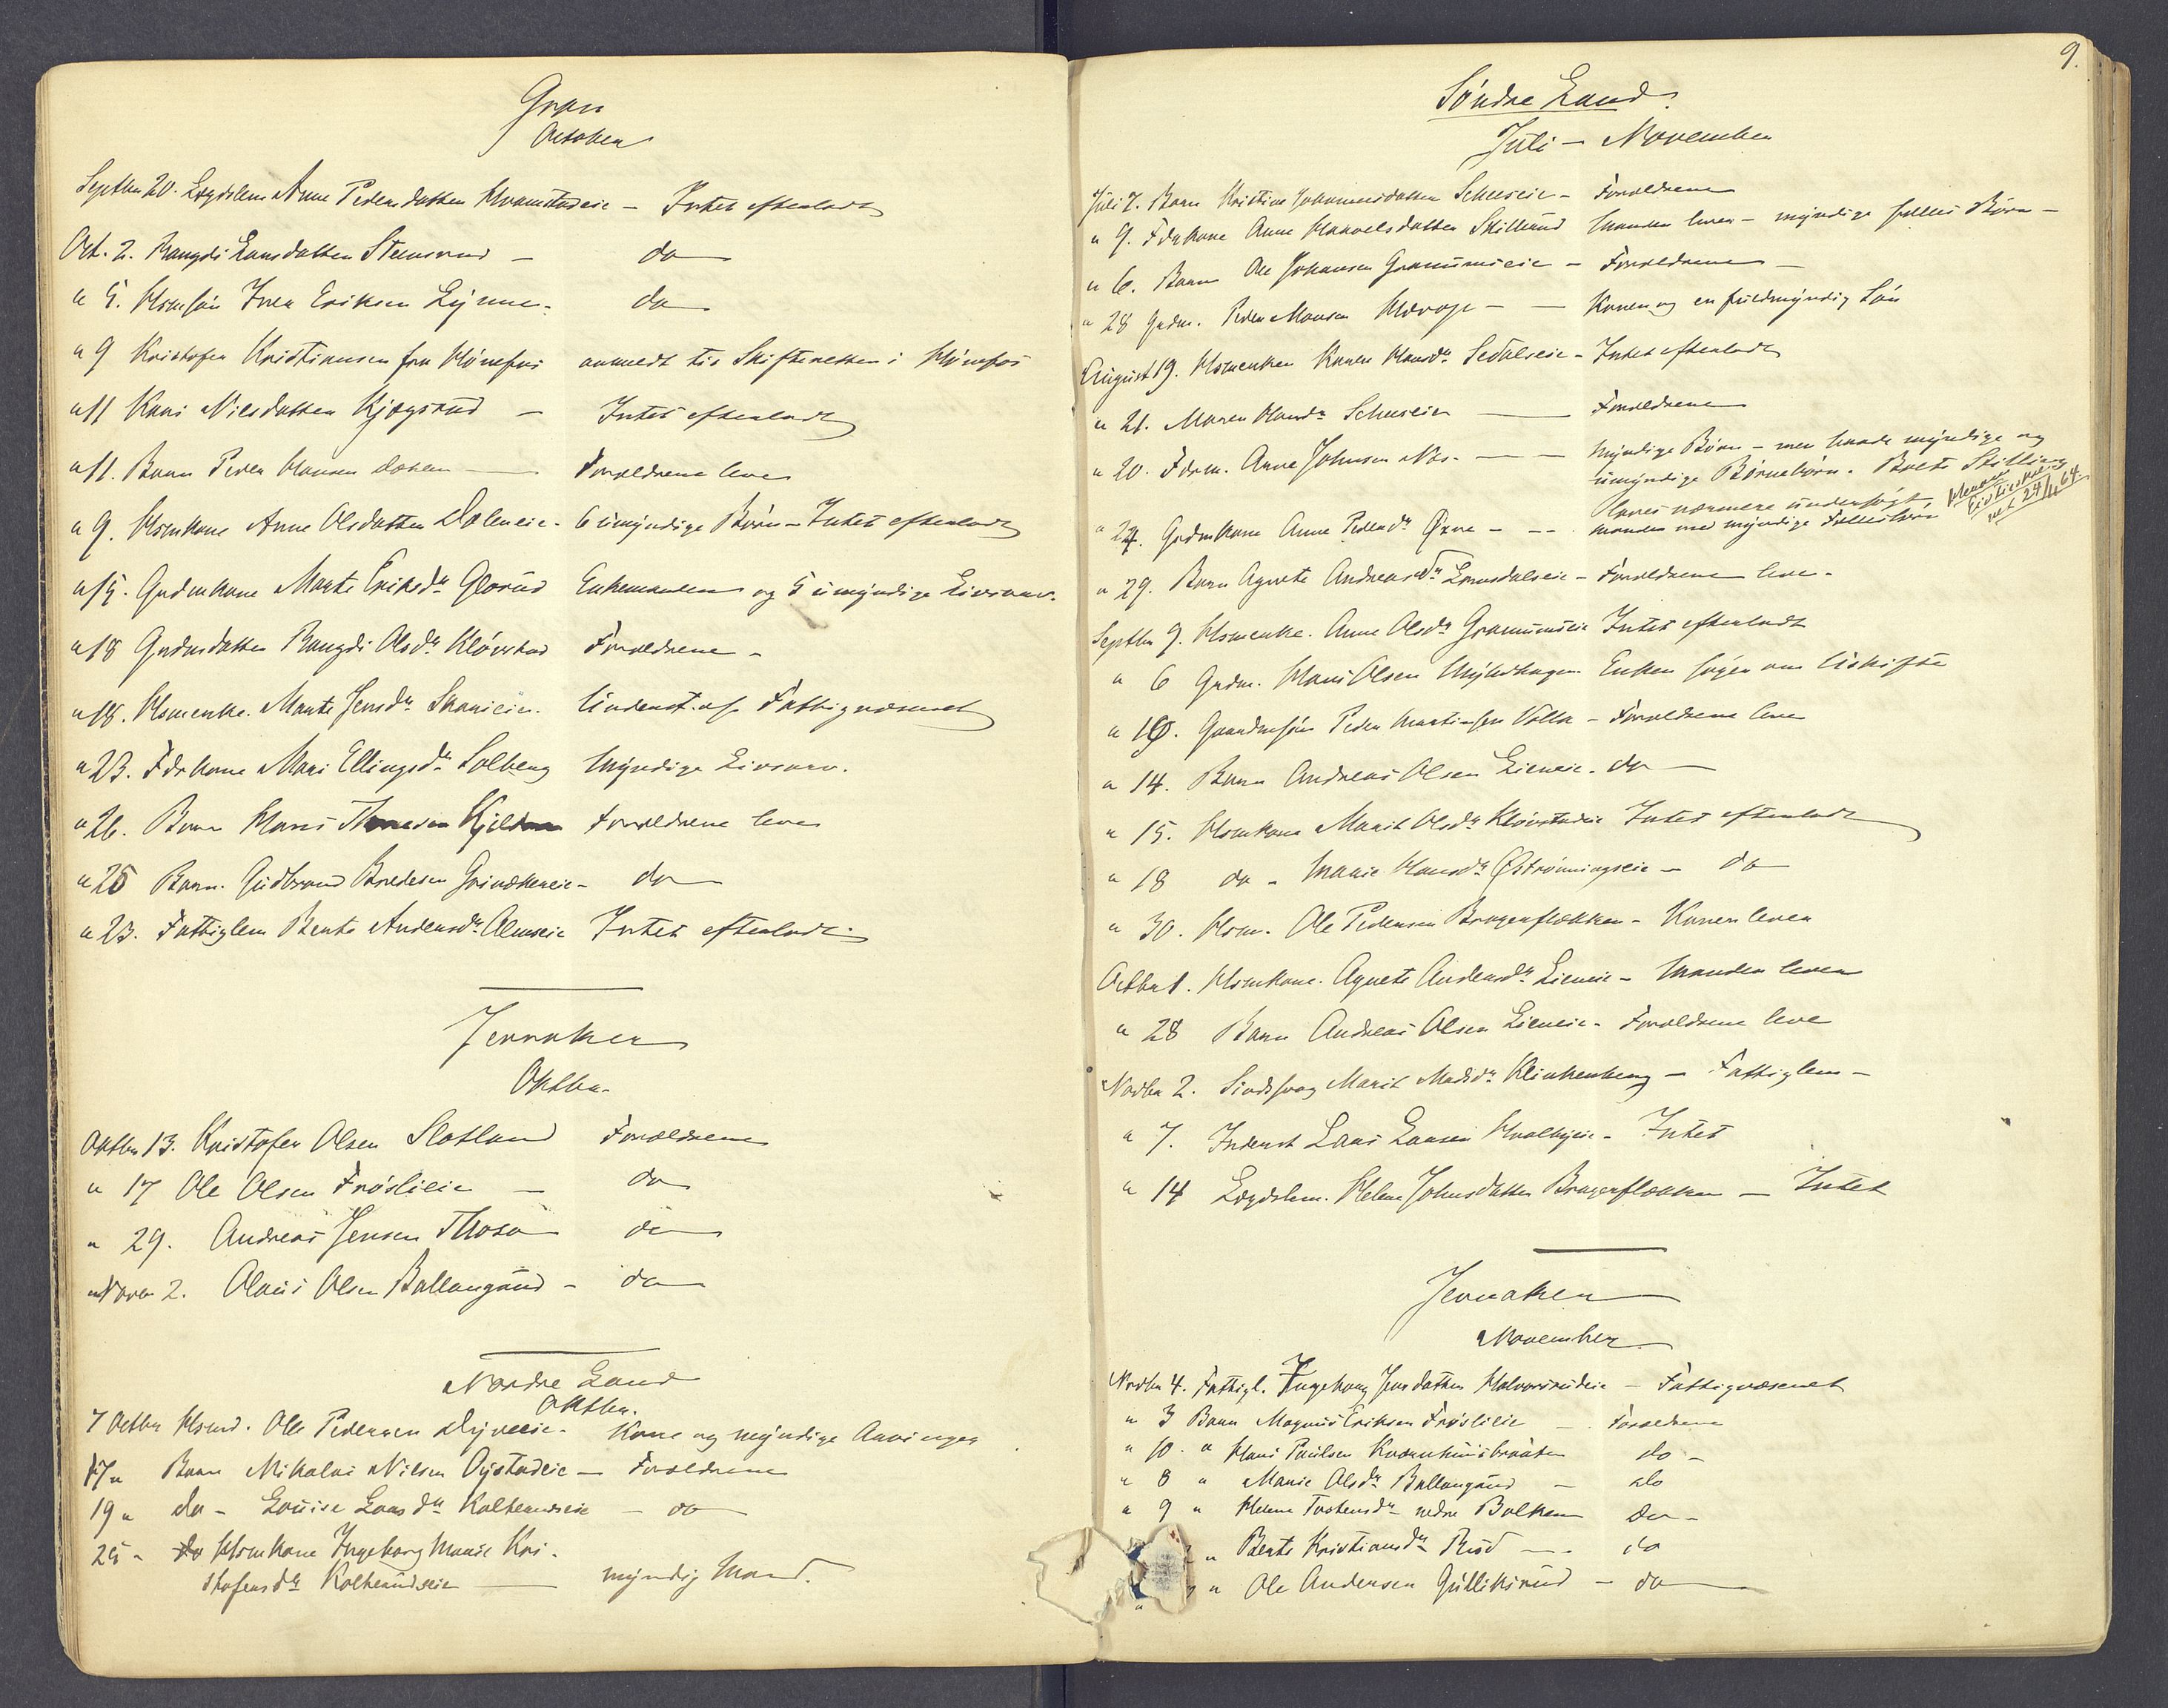 Gran
October
Septbr 20. Lægdslem Anne Pedersdatter Hvamstadeie - Intet efterladt
Oct. 2. Rangdi Larsdatter Steensrud - do
" 5. Hsmsøn Iver Eriksen Lynne - do
" 9 Kristofer Kristiansen fra Hønefos anmeldt til Skifteretten i Hønefos
" 11 Kari Nilsdatter Kjægsrud - Intet efterladt
" 11. Barn Peder Hansen Dælen - Forældrene leve
" 9. Hsmkone Anne Olsdatter Dæleneie - 6 umyndige Børn - Intet efterladt
" 15. Grdmkone Marte Eriksdr Glorud Enkemanden og 5 umyndige Livsarv.
" 18 Grdmdatter Rangdi Olsdr Kløvstad Forældrene -
" 18. Hsmenke. Marte Jensdr Skarieie. Underst. af Fattigvæsenet
" 23. Fdrkone Mari Ellingsdr Solberg Myndige Livsarv.
" 26. Barn Hans Forældrene leve
" 25 Barn. Gudbrand Bredesen Grindkereie - do
" 23. Fattiglem Berte Andersdr Almseie Intet efterladt.
Jevnaker
Oktbr.
Oktbr 13. Kristofer Olsen Slotland Forældrene
" 17 Ole Olsen Frøslieie - do
" 29. Andreas Jensen Thoso do
" Novbr 2. Olaus Olsen Ballangrud - do
Nordre Land
Oktbr.
7 Octbr Hsmd. Ole Pedersen Kone og myndige Arvinger
17 " Barn Mikalai Nilsen Forældrene
19 " do - Louise Larsdr Kolkerudseie - do
25 - do Hsmkone Ingeborg Marie Kri-
stofersdr Kolkerudseie - myndig Mand.
9.
Søndre Land.
Juli - November
Juli 7. Barn Kristine Johannesdatter - Forældrene
" 9. Fdrkone Anne Skillund Manden lever - myndige fælles Børn -
" 6. Barn Ole Johansen Granumseie - Forældrene -
" 28 Grdm. Peder Monsen - - Konen og en fuldmyndig Søn
August 19. Hsmenken Karen Hansdr - Intet efterladt
" 21. Maren Hansdr - Forældrene
" 20. Fdrm. Arne Johnsen Næs. - - Myndige Børn - men baade myndige og
umyndige Børnebørn.
nærmere undersøgt
24/11 64.
" 24. Grdmkone Anne Pedersdr - - - Manden med myndige Fællesbørn
" 29. Barn Agnete Andreasdr - Forældrene leve -
Septbr 9. Hsmenke. Anne Olsdr Granumseie Intet efterladt
" 6 Grdm. Hans Olsen Enken søger om Uskifte
" 10. Gaardmsøn Peder Martinsen Volla - Forældrene leve
" 14. Barn Andreas Olsen Lieneie - do -
" 15. Hsmkone Marit Olsdr Kløvstadeie Intet efterladt
" 18 do - Marie Hansdr Østrønningseie - do
" 30. Hsm. Ole Pedersen Bragerflækken - Konen lever
Octbr 1. Hsmkone. Agnete Andersdr Lieneie - Manden lever
" 28 Barn Andreas Olsen Lieneie - Forældrene leve
Novbr 2. Sindssvag Marit Madsdr Klinkenberg - Fattiglem -
" 7. Inderst Lars Larsen - Intet
" 14 Lægdslem. Helene Johnsdatter Bragerflækken - Intet
Jevnaker
November
Novbr 4. Fattigl. Ingeborg Jensdatter Halvorsrudeie - Fattigvæsenet
" 3 Barn Magnus Eriksen Frøslieie - Forældrene
" 10. " Hans Paulsen do -
" 8 " Marie Olsdr Ballangrud - do
" 9 " Helene Torstensdr nedre Bolken do -
" Berte Kristiansdr Rud - do
" " Ole Andersen Gulliksrud - do